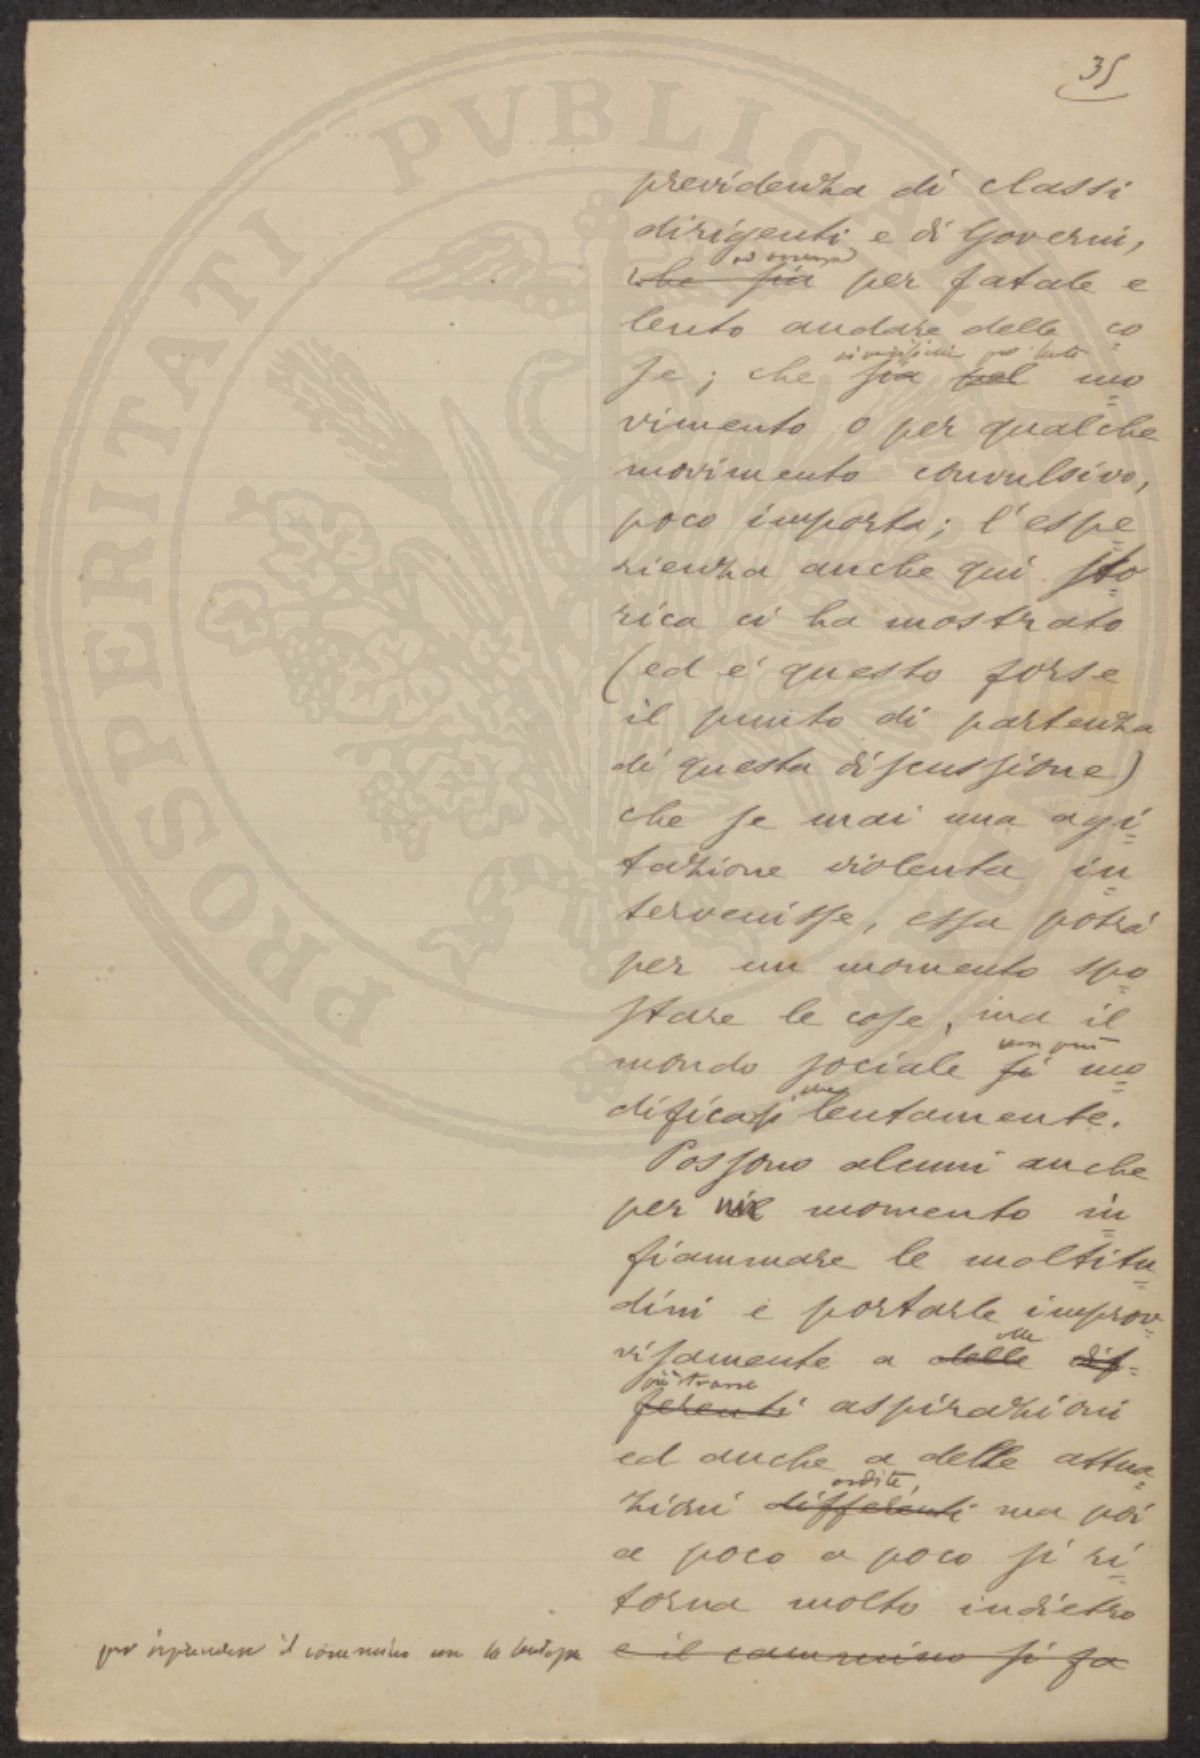 35
previdenza di classi
dirigenti e di Governi,
od avvenga
che sia per fatale e
lento andare delle co
si verifichi per lento
se; che sia pel mo
vimento o per qualche
movimento convulsivo,
poco importa; l'espe
rienza anche qui sto
rica ci ha mostrato
(ed è questo forse
il punto di partenza
di questa discussione)
che se mai una agi
tazione violenta in
tervenisse, essa potrà
per un momento spo
stare le cose, ma il
non può
mondo sociale si mo
che
dificarsi lentamente.
Possono alcuni anche
per un momento in
fiammare le moltitu
dini e portarle improv
alle
visamente a delle dif-
più strane
ferenti aspirazioni
ed anche a delle attua
ardite,
zioni differenti ma poi
a poco a poco si ri
torna molto indietro
per riprendere il cammino con la
e il cammino si fa
PROSPERITATI PVBLICAE